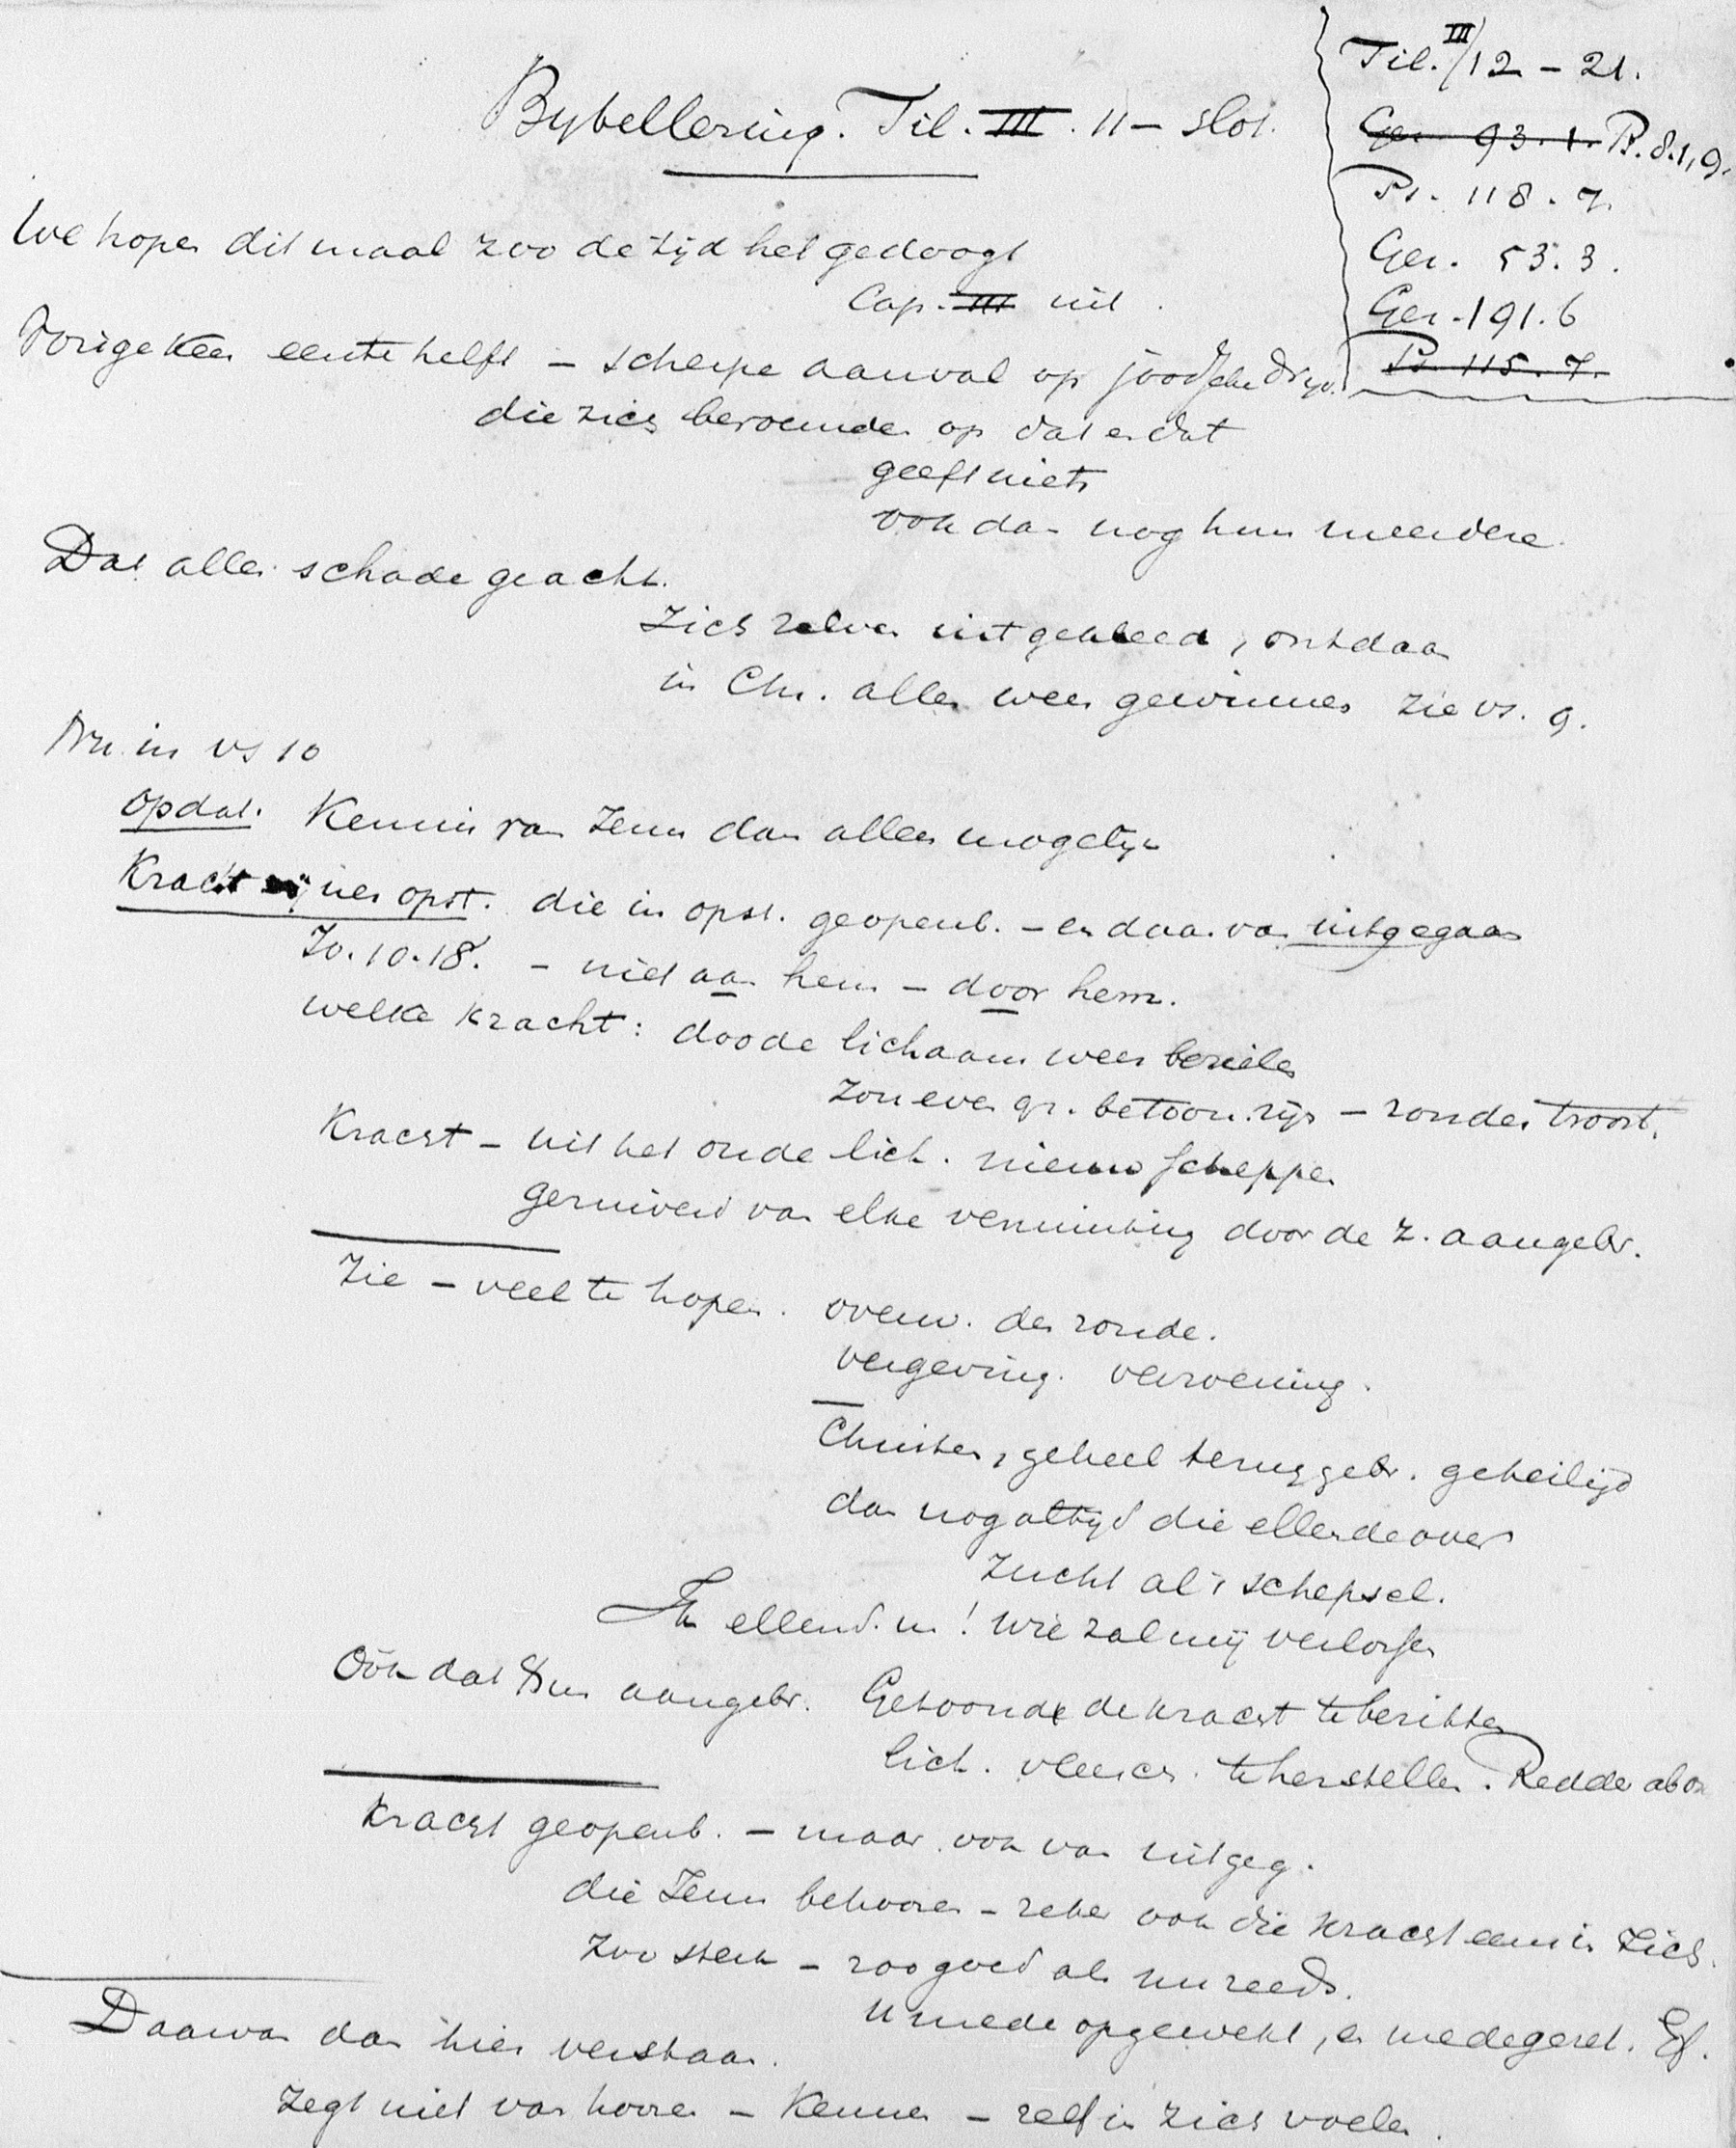 Bijbellezing. Fil. III. 11 – slot.
Fil. III/12 – 21.
Gez. 93.1. Ps. 8.1,9.
Ps. 118.7.
Gez. 53.3.
Gez. 191.6
Ps. 115.7.
We hopen ditmaal zoo de tijd het gedoogt
Cap. III uit.
Vorige keer eerste helft – scherpe aanval op joodsche
die zich beroemden op dat en dat
geeft niets
ook dan nog hun meerdere
Dat alles schade geacht.
Zich zelven uitgekleed, ontdaan
in Chr. alles weer gewinnen zie vs. 9.
Nu in vs 10
opdat. Kennis van Jezus dan alleen mogelijk
Kracht zijner opst. die in opst. geopenb. – en daarvan uitgegaan
Jo. 10.18. – niet aan hem – door hem.
welke kracht: doode lichaam weer bezielen
Zou even gr. betoon zijn – zonder troost.
Kracht – uit het oude lich. nieuw scheppen
gezuiverd van elke verminking door de z. aangebr.
Zie – veel te hopen. overw. der zonde.
vergeving. verzoening.
Christen, geheel teruggebr. geheiligd
dan nog altijd die ellende over
Zucht als schepsel.
Ik ellend. m! wie zal mij verlossen
Oók dat Jezus aangebr. Getoond de kracht te bezitten
lich. vleesch. te herstellen. Redder ab
Kracht geopenb. – maar ook van uitgeg.
die Jezus behooren – zeker ook die kracht eens in zich.
Zoo sterk – zoo goed als nu reeds.
U mede opgewekt, en medegezet. Ef.
Daarvan dan hier verstaan.
Zegt niet van hooren – Kennen – zelf in zich voelen.